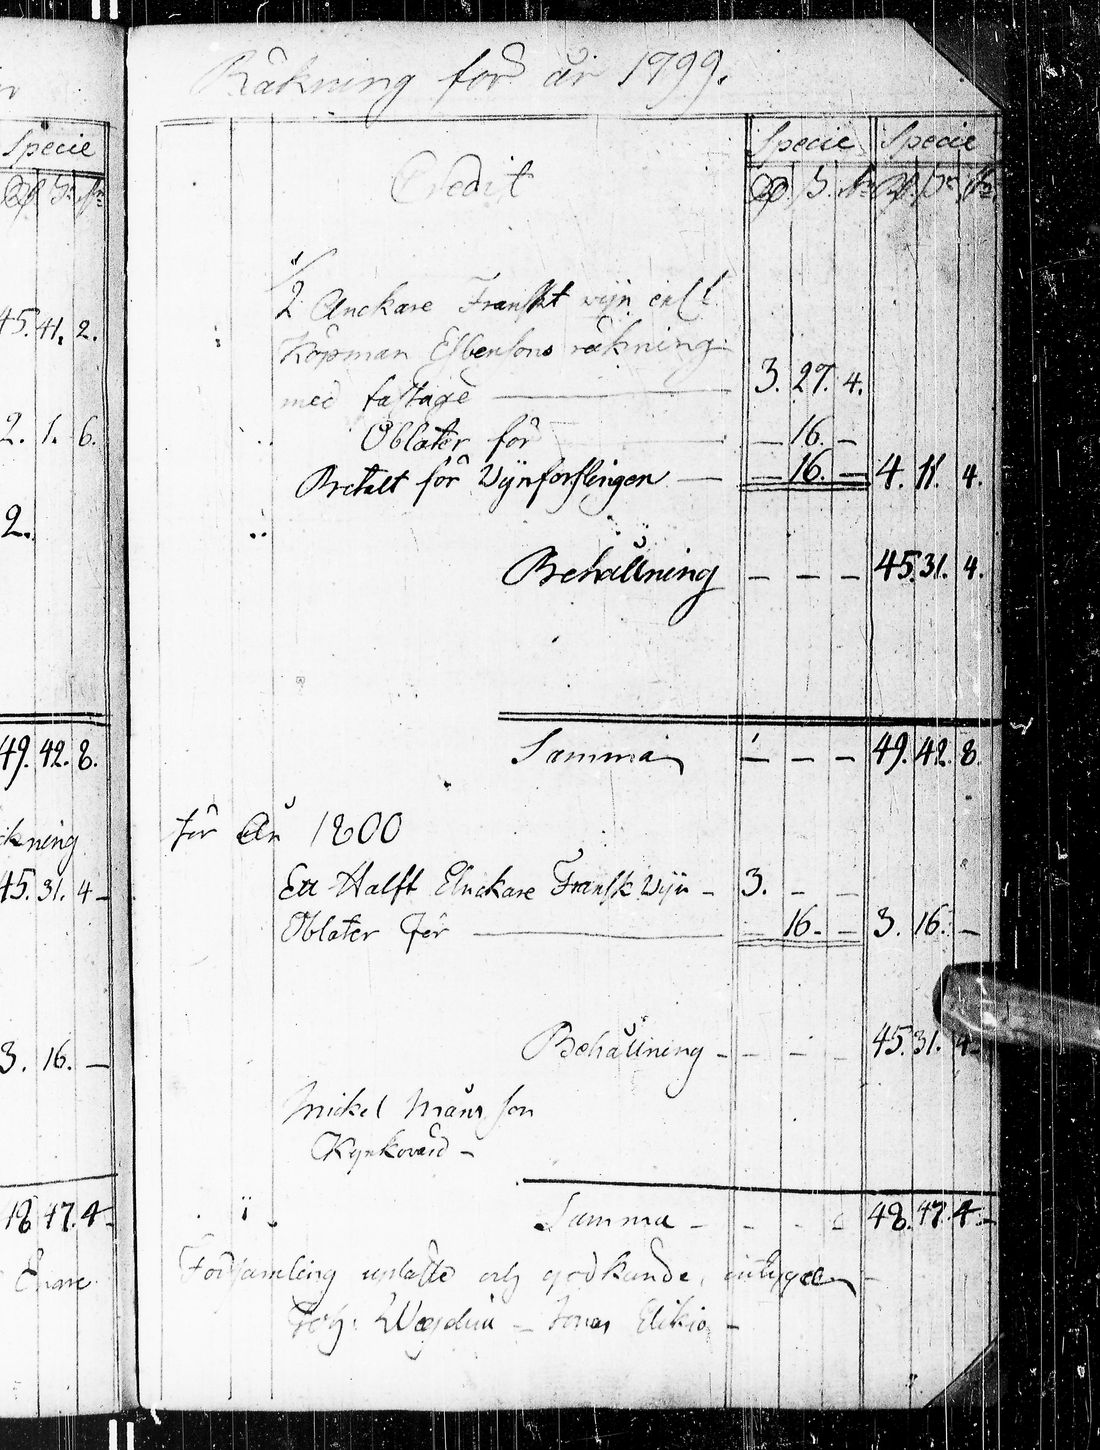 Räkning för år 1799.
Specie Specie Specie
Credit
1/2 Anckare Franskt wijn enl.
45. 41. 2.
Köpman Esbensons räkning
med fastage 3. 27. 4.
2. 1. 6. Oblater för — 16. —
Betalt för Wijnforslingen — 16. — 4. 11. 4.
2.
Behållning — — — 45. 31. 4.
49. 42. 8. Summa — — — 49. 42. 8.
för År 1800
kning
45. 31. 4 – Ett Halft Anckare Fransk Wijn – 3. – –
Oblater för — 16. – 3. 16. –
3. 16. — Behållning – – – – 45. 31. 4–
Mickel Månsson
Kyrkovärd –
18 47. 4– Summa – – – 48. 47. 4–
Enare Församling upläste och godkände, intygar
Joh: – Jonas